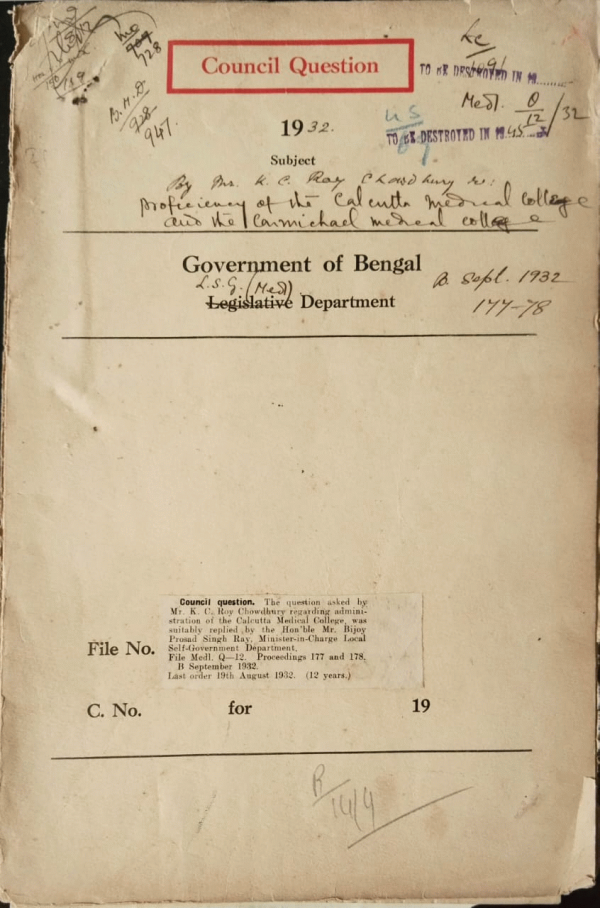 Council Question
TO BE DESTROYED IN 19
Medl. Q/12/32
TO BE DESTROYED IN 1945
B.M.D.
947.
1932.
Subject
By Mr. K. C. Ray Chowdhury re:
Proficiency of the Calcutta Medical College
and the Carmichael medical college
Government of Bengal
L.S.G. (Med)
Legislative Department
B. Sept. 1932
177-78
Council question. The question asked by
Mr. K. C. Roy Chowdhury regarding admini-
stration of the Calcutta Medical College, was
suitably replied by the Hon'ble Mr. Bijoy
Prosad Singh Ray, Minister-in-Charge Local
Self-Government Department.
File Medl. Q—12. Proceedings 177 and 178,
B September 1932.
Last order 19th August 1932. (12 years.)
File No.
C. No. for 19